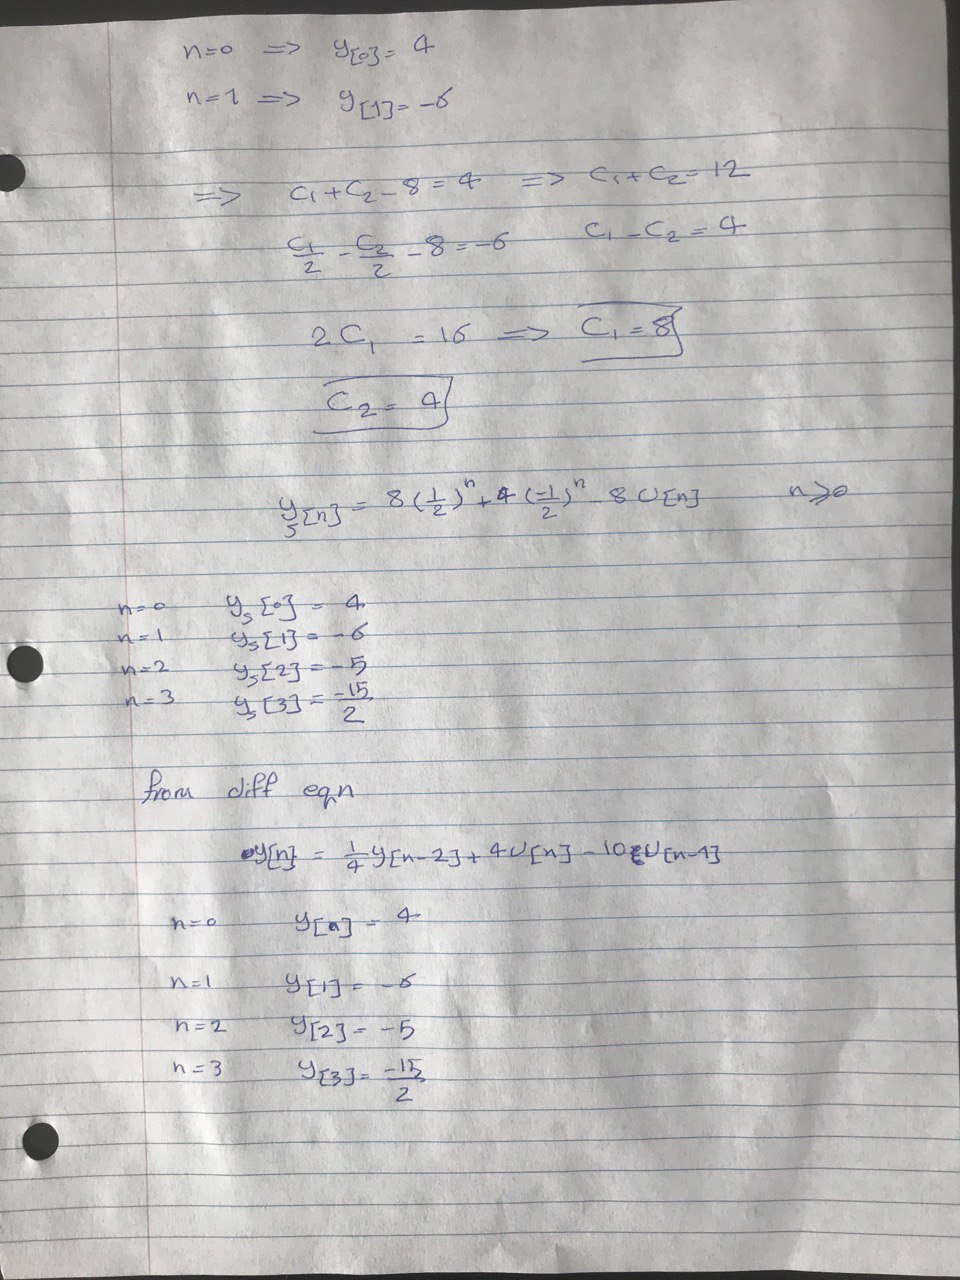 n=0 => y[0]= 4
n=1 => y[1]= -6
=> C₁+C₂-8=4 => C₁+C₂=12
C₁/2 - C₂/2 - 8 = -6 C₁-C₂ = 4
2C₁ = 16 => C₁=8
C₂ = 4
yₛ[n] = 8(1/2)ⁿ + 4(-1/2)ⁿ - 8U[n] n≥0
n=0 yₛ[0] = 4
n=1 yₛ[1] = -6
n=2 yₛ[2] = -5
n=3 yₛ[3] = -15/2
from diff eqn
y[n] = 1/4 y[n-2] + 4U[n] - 10U[n-1]
n=0 y[n] = 4
n=1 y[1] = -6
n=2 y[2] = -5
n=3 y[3] = -15/2